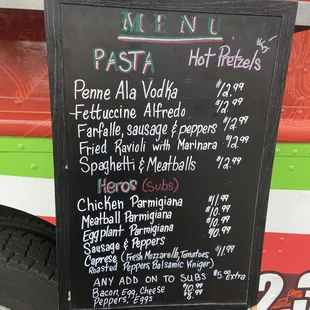 MENU
PASTA
Hot Pretzels
Penne Ala Vodka $12.99
Fettuccine Alfredo $12.99
Farfalle, sausage & peppers $12.99
Fried Ravioli with Marinara $12.99
Spaghetti & Meatballs $12.99
Heros (Subs)
Chicken Parmigiana $11.99
Meatball Parmigiana $10.99
Eggplant Parmigiana $10.99
Sausage & Peppers $10.99
Caprese (Fresh Mozzarella, Tomatoes, $11.99
Roasted Peppers, Balsamic Viniger)
ANY ADD ON TO SUBS $5.00 Extra
Bacon, Egg, Cheese
Peppers, Eggs $8.99